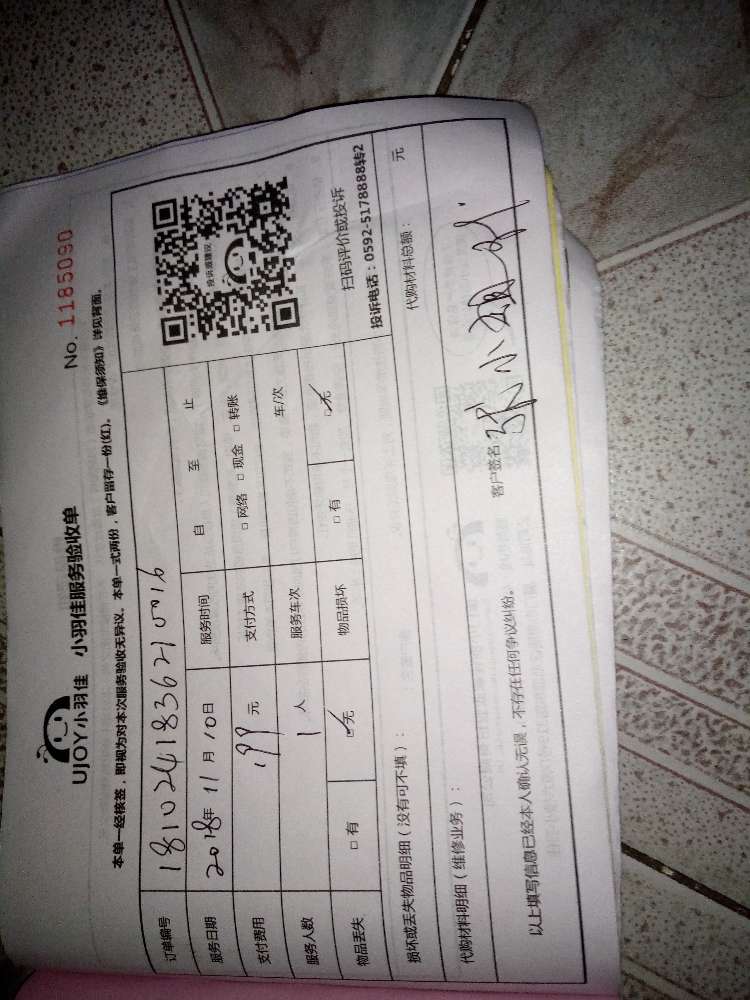 UJOY小羽佳 小羽佳服务验收单
No. 1185090
本单一经核签，即视为对本次服务验收无异议。本单一式两份，客户留存一份(红)。《维保须知》详见背面。
订单编号 1810241836210016
服务日期 2018年 11月 10日 服务时间 自 至 止
支付费用 199元 支付方式 □网络 □现金 □转账
服务人数 1人 服务车次 车/次
物品丢失 □有 □无 物品损坏 □有 □无
投诉或建议
扫码评价或投诉
投诉电话：0592-5178888转2
损坏或丢失物品明细（没有可不填）：
代购材料明细（维修业务）： 代购材料总额： 元
以上填写信息已经本人确认无误，不存在任何争议纠纷。 客户签名：张小姐